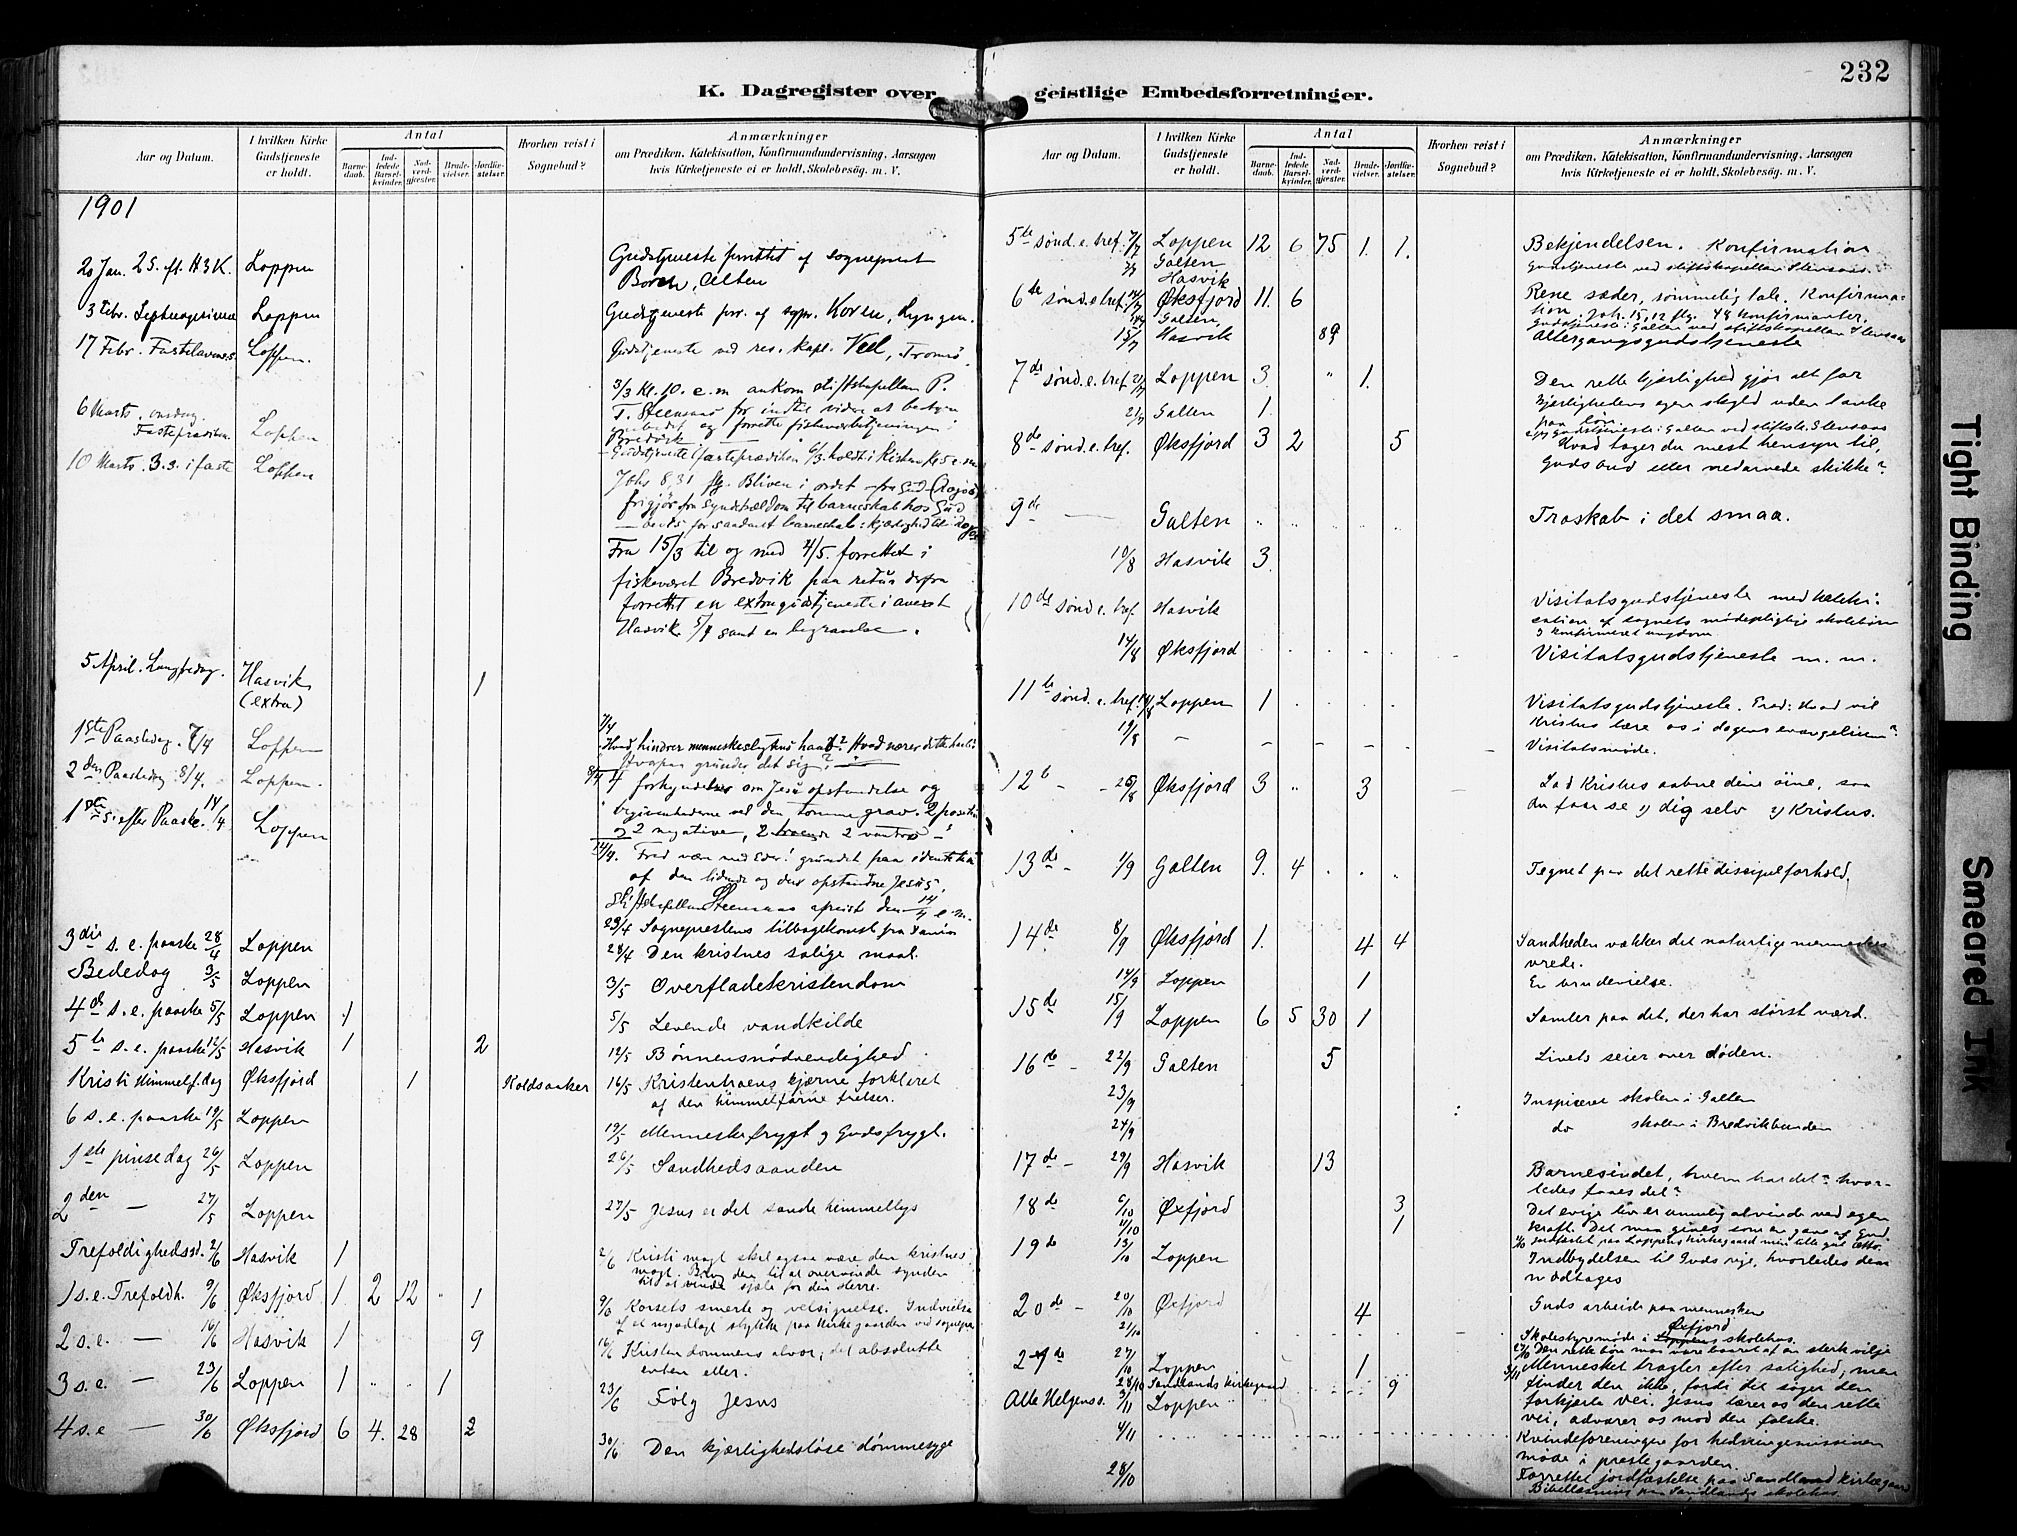 232
K. Dagregister over geistlige Embedsforretninger.
Aar og Datum.
I hvilken Kirke Gudstjeneste er holdt.
Antal
Barnedaab.
Indledede Barselkvinder.
Nadverdgjester.
Brudevielser.
Jordfæstelser.
Hvorhen reist i Sognebud?
Anmærkninger
om Prædiken, Katekisation, Konfirmandundervisning, Aarsagen
hvis Kirketjeneste ei er holdt, Skolebesøg. m. V.
1901
20 Jan. 2 S. eft. H3K. Loppen Gudstjeneste forrettet af sogneprest
Borch, Alten
3 Febr. Septuagesima Loppen Gudstjeneste forr. af sgpr. Koren, Lyngen.
17 Febr. Fastelavnss. Loppen. Gudstjeneste ved res. kapl. Veel, Tromsø
3/3 Kl. 10. e.m ankom stiftskapellan P.
6 Marts. onsdag. T. Steensaas for indtil videre at bestyre
Fasteprædiken. Loppen embedet og forrette fiskeværbetjeningen i
Bredvik
10 Marts. 3. s. i faste Loppen Gudstjeneste (fasteprædiken) 6/3 holdt i Kirken Kl 5 e.m
Johs 8,31 flg. Bliven i ordet fra Gud
frigjør fra syndetrældom til barneskab hos Gud
Fra 15/3 til og med 4/5. forrettet i
fiskeværet Bredvik paa retur derfra
forrettet en extragudstjeneste i
Hasvik 5/4 samt en begravelse.
5 April. Langfredag. Hasvik 1
(extra)
1ste Paaskedag. 7/4 Loppen 7/4 Hvad hindrer menneskeslegtens haab? Hvad nærer dette haab?
Hvorpaa grunder det sig?
2den Paaskedag 8/4. Loppen. 8/4 4 forkyndelser om Jesu opstandelse og
begivenhederne ved den tomme grav. 2 positive
1ste s. efter Paaske. 14/4 Loppen og 2 negative, 2 troende 2 vantro
14/4. Fred være med Eder! grundet paa identitet
af den lidende og den opstandne Jesus.
Stiftskapellan Steensaas afreist den 14/4 e.m.
23/4 Sogneprestens tilbagekomst fra
3die s. e. paaske 28/4 Loppen 28/4 Den kristnes salige maal.
Bededag 3/5 Loppen 3/5 Overfladekristendom
4de s. e. paaske 5/5 Loppen 1 5/5 Levende vandkilde
5te s. e. paaske 12/5 Hasvik 1 2 12/5 Bønnens nødvendighed
Kristi Himmelf.dag Øksfjord 1 Koldsaaker 16/5 Kristentroens kjærne forklaret
af den himmelfarne frelser.
6 s. e. paaske 19/5 Loppen 19/5 Menneskefrygt og Gudsfrygt.
1ste pinsedag 26/5 Loppen 26/5 Sandhedsaanden
2den — 27/5 Loppen 27/5 Jesus er det sande himmellys
Trefoldighedss. 2/6 Hasvik 1 2/6 Kristi magt skal ogsaa være den kristnes
magt. Brug den til at overvinde synden
til at vinde sjæle for din Herre.
1 s. e. Trefoldh. 9/6 Øksfjord 1 2 12 " 1 9/6 Korsets smerte og velsignelse. Indvielse
af et nyudlagt stykke paa kirkegaarden ved sognepr
2 s. e. — 16/6 Hasvik 1 9 16/6 Kristendommens alvor; det absolutte
enten eller.
3 s. e. — 23/6 Loppen 1 1 23/6 Følg Jesus
4 s. e — 30/6 Øksfjord 6 4. 28 2 30/6 Den kjærlighedsløse dømmesyge
Aar og Datum.
I hvilken Kirke Gudstjeneste er holdt.
Antal
Barnedaab.
Indledede Barselkvinder.
Nadverdgjester.
Brudevielser.
Jordfæstelser.
Hvorhen reist i Sognebud?
Anmærkninger
om Prædiken, Katekisation, Konfirmandundervisning, Aarsagen
hvis Kirketjeneste ei er holdt, Skolebesøg. m. V.
5te sønd. e. tref. 7/7 Loppen 12 6 75 1. 1. Bekjendelsen. Konfirmation
7/7 Galten Gudstjeneste ved stiftskapellan Steensaas.
Hasvik
6te sønd. e. tref. 14/7 Øksfjord 11. 6 Rene sæder, sømmelig tale. Konfirma-
tion. Joh. 15,12 flg. 48 konfirmanter.
14/7 Galten. Gudstjeneste i Galten ved stiftskapellan Steensaas
15/7 Hasvik 89 Altergangsgudstjeneste
7de sønd. e. tref. 21/7 Loppen 3. " 1. Den rette kjærlighed gjør alt for
kjærlighedens egen skyld uden tanke
paa løn.
21/7 Galten 1. Gudstjeneste i Galten ved stiftsk. Steensaas
8de sønd. e. tref. Øksfjord 3 2 5 Hvad tager du mest hensyn til,
Guds bud eller nedarvede skikke?
9de — Galten Troskab i det smaa.
10/8 Hasvik 3.
10de sønd. e. tref. Hasvik Visitatsgudstjeneste med kateki-
sation af sognets mødepligtige skolebørn
& konfirmeret ungdom
14/8 Øksfjord Visitatsgudstjeneste m. m.
11te sønd. e. tref. 18/8 Loppen 1 Visitatsgudstjeneste. Præd: Hvad vil
Kristus lære os i dagens evangelium?
19/8 — Visitatsmøde.
12te - - 25/8 Øksfjord 3 " 3 Lad Kristus aabne dine øine, saa
du faar se 1) dig selv 2) Kristus.
13de - 1/9 Galten 9. 4 Tegnet paa det rette discipelforhold.
14de 8/9 Øksfjord 1. 4 4 Sandheden vækker det naturlige menneskes
vrede.
14/9 Loppen 1 En brudevielse.
15de 15/9 Loppen 6 5 30 1 Samler paa det, der har størst værd.
16de - 22/9 Galten 5 Livets seier over døden.
23/9 Inspiceret skolen i Galten
24/9 do skolen i Bredvikbunden
17de - 29/9 Hasvik 13 Barnesindet, hvem har det? hvor-
ledes faaes det?
18de 6/10 Øxfjord 3 Det evige liv er umulig at vinde ved egen
kraft. Det maa gives som en gave af Gud.
11/10 1 11/10 Jordfæstet paa Loppens kirkegaard
19de 13/10 Loppen Indbydelsen til Guds rige, hvorledes den
modtages
20de - 20/10 Øxfjord 4 Guds arbeide paa mennesken
Øxfjord
21/10 Skolestyremøde i Loppens skolehus.
21de 27/10 Loppen 1 27/10 Den rette bøn maa være baaret af en sterk vilje
28/10 Sandlands kirkegaard 9 3/11 Mennesket tragter efter salighed, men
Alle Helgens s. 3/11 Loppen finder den ikke, fordi det søger den
forkjerte vei. Jesus lærer os den rette
vei, advarer os mod den falske.
4/11 Kvindeforeningen for hedningemissionen
møde i prestegaarden.
28/10 Forrettet jordfæstelse paa Sandland kirkegaard
Bibellæsning paa Sandlands skolehus.
Tight Binding
Smeared Ink